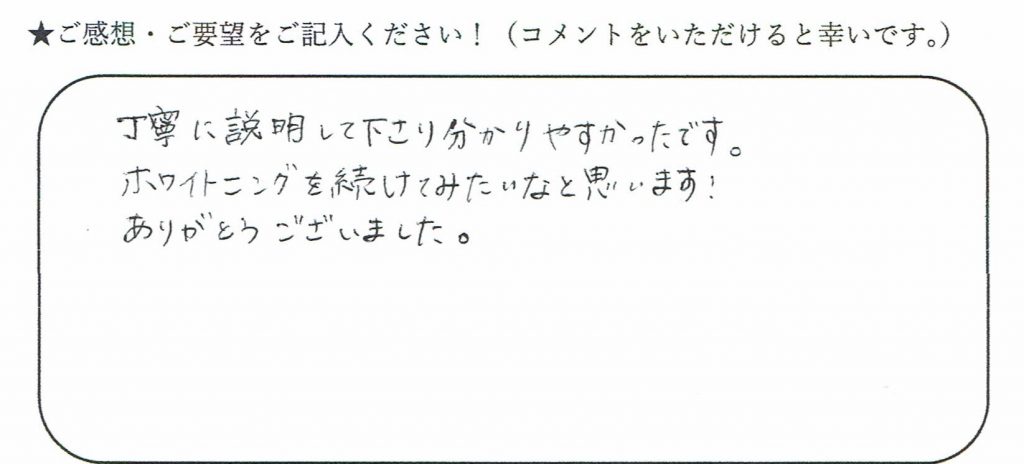 ★ご感想・ご要望をご記入ください！（コメントをいただけると幸いです。）
丁寧に説明して下さり分かりやすかったです。
ホワイトニングを続けてみたいなと思います！
ありがとうございました。